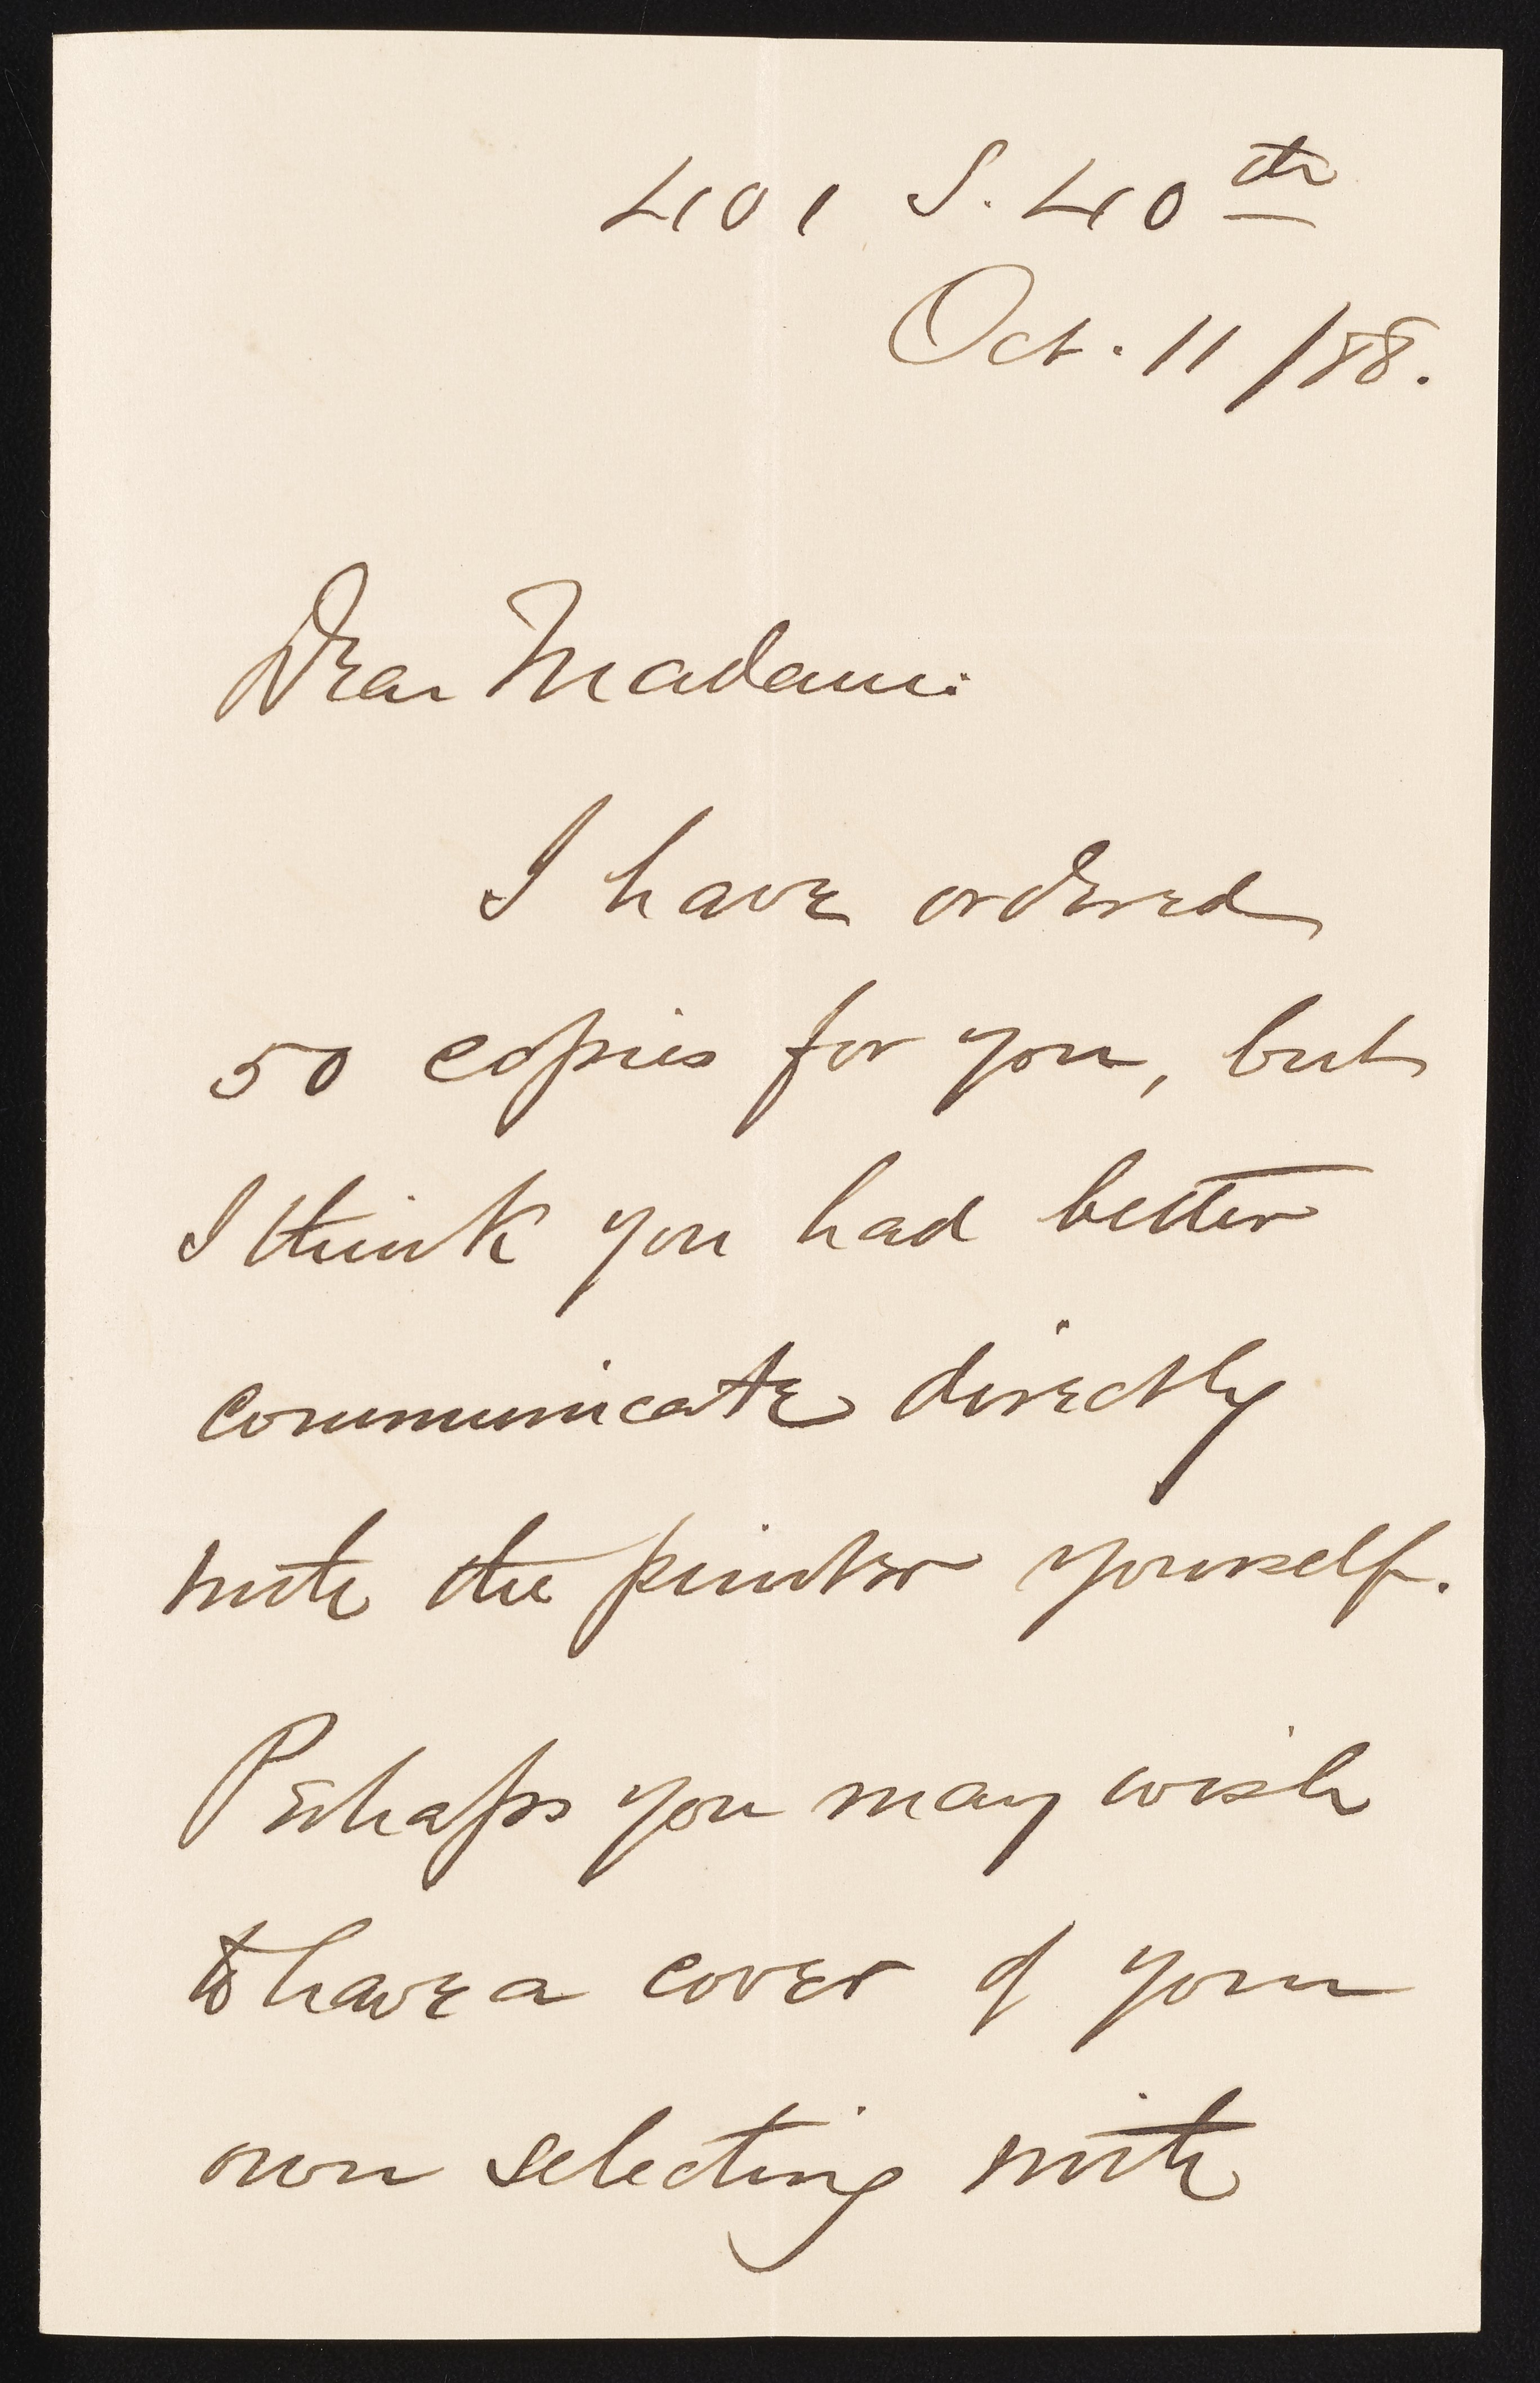 401 S. 40th
Oct. 11 /88.
Dear Madam:
I have ordered
50 copies for you, but
I think you had better
communicate directly
with the printer yourself.
Perhaps you may wish
to have a cover of your
own selecting with